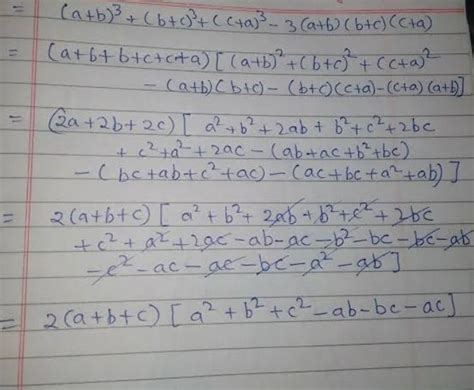 = (a+b)³ + (b+c)³ + (c+a)³ - 3(a+b)(b+c)(c+a)
= (a+b+b+c+c+a) [ (a+b)² + (b+c)² + (c+a)²
- (a+b)(b+c) - (b+c)(c+a) - (c+a)(a+b)]
= (2a+2b+2c) [ a²+b²+2ab + b²+c²+2bc
+ c²+a²+2ac - (ab+ac+b²+bc)
- (bc+ab+c²+ac) - (ac+bc+a²+ab) ]
= 2(a+b+c) [ a²+b²+2ab+b²+c²+2bc
+c²+a²+2ac-ab-ac-b²-bc-bc-ab
-c²-ac-ac-bc-a²-ab]
= 2(a+b+c) [ a²+b²+c²-ab-bc-ac]